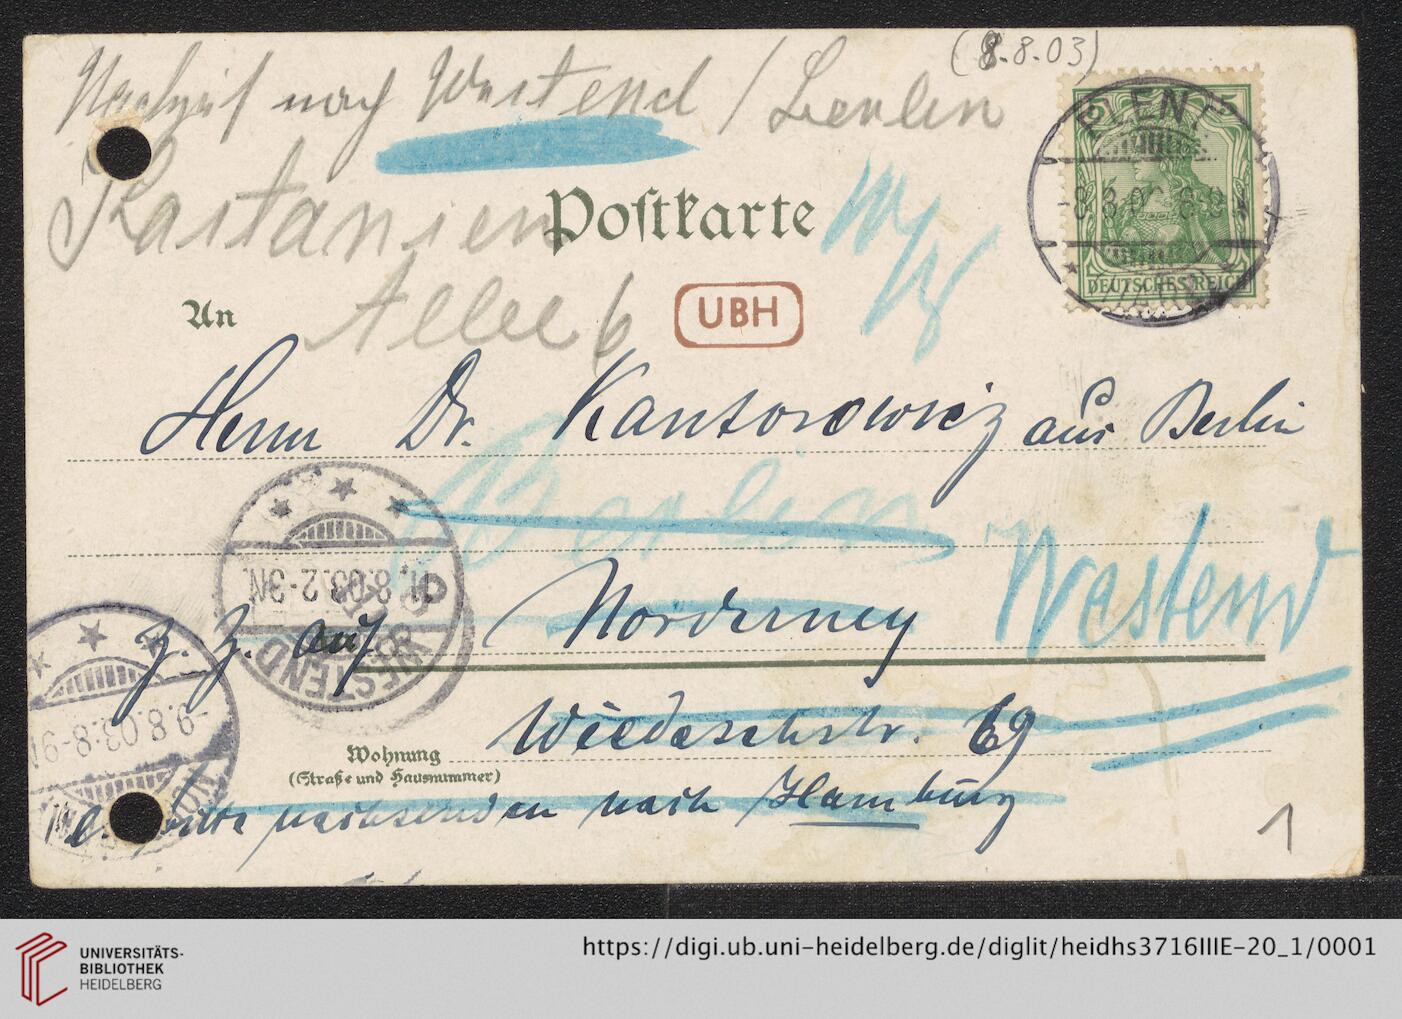 (8.8.03)
nach Westend / Berlin
Kastanien
Allee 6
Postkarte
An
UBH
DEUTSCHES REICH
Herrn Dr. Kantorowicz aus Berlin
Berlin
Westend
z. Z. auf Norderney
Wiedaschstr. 69
Wohnung
(Straße und Hausnummer)
bitte nachsenden nach Hamburg
11.8.03.2-3N.
WESTEND
-9.8.03.8-9
1
UNIVERSITÄTS-
BIBLIOTHEK
HEIDELBERG
https://digi.ub.uni-heidelberg.de/diglit/heidhs3716IIIE-20_1/0001